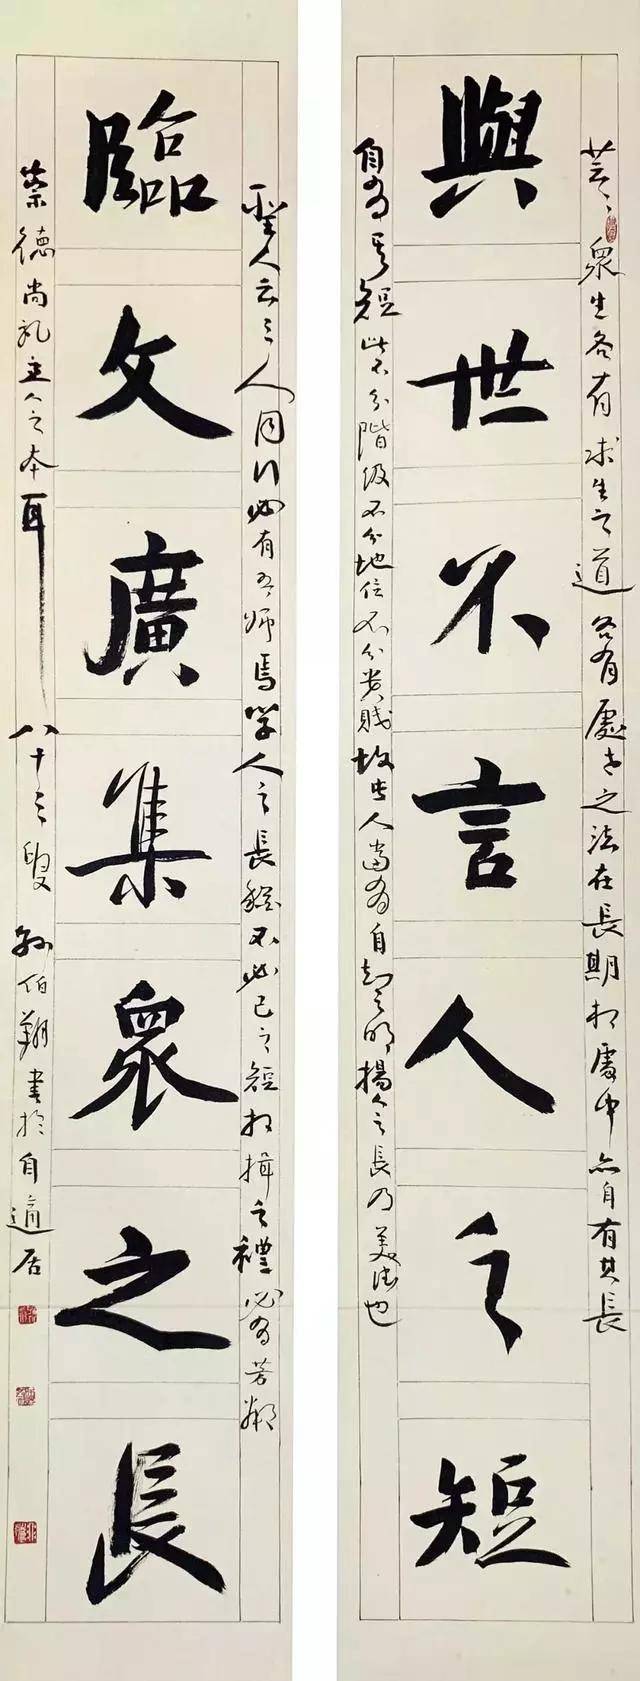 與世不言人之短
芸芸眾生各有求生之道各有處世之法在長期相處中亦自有其長
自有其短 此不分階級不分地位不分貴賤故 人當有自知之明揚人之長乃美德也
臨文廣集眾之長
聖人云三人同行必有吾師焉學人之長 不必己之短 揖之禮必為
崇德尚禮立人之本耳 八十三叟孫伯翔書於自適居